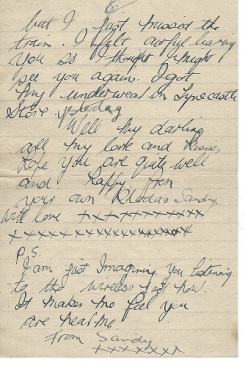 6
but I just missed the
train. I felt awful leaving
you so I thought I might
see you again. I got
my underwear in Tynecastle
Store yesterday
Well my darling
all my love and kisses,
hope you are quite well
and happy from
your own Rhodas Sandy
with love xxxxxxxxxxx
xxxxxxxxxxxxxxxxx
P.S.
I am just Imagining you listening
to the wireless just now.
It makes me feel you
are near me
From Sandy
xxxxxxx